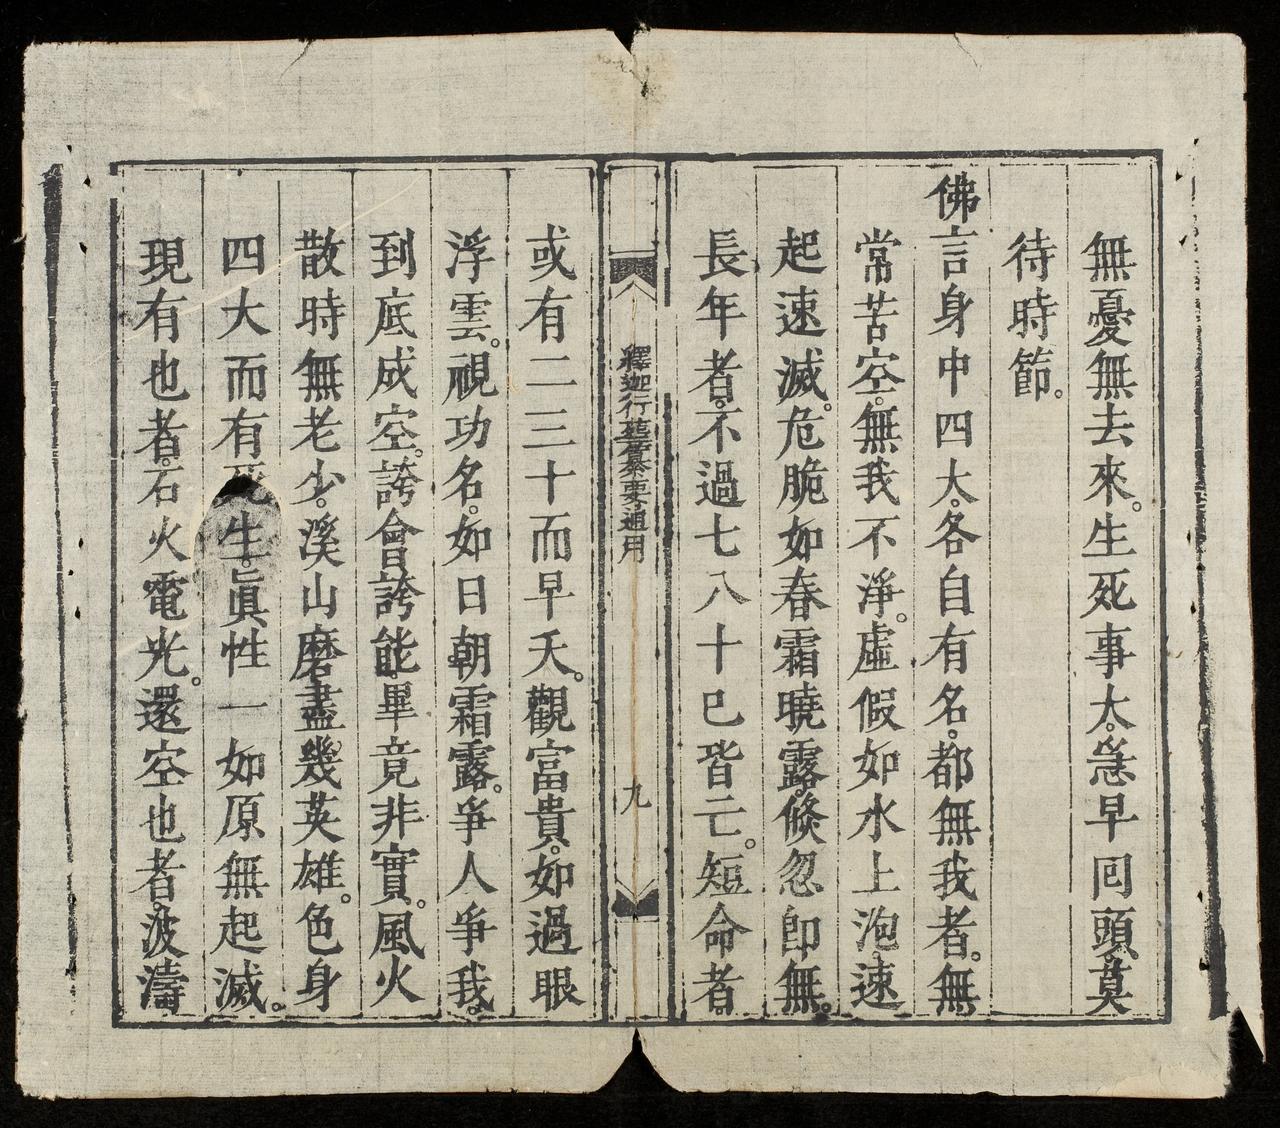 無憂無去來。生死事大。急早囘頭。莫
待時節。
佛言身中四大。各自有名。都無我者。無
常苦空。無我不淨。虛假如水上泡。速
起速滅。危脆如春霜曉露。倐忽卽無。
長年者。不過七八十已皆亡。短命者。
釋迦行 纂要通用
九
或有二三十而早夭。觀富貴。如過眼
浮雲。視功名。如日朝霜露。爭人爭我。
到底成空。誇會誇能。畢竟非實。風火
散時無老少。溪山磨盡幾英雄。色身
四大而有死生。眞性一如原無起滅。
現有也者。石火電光。還空也者。波濤